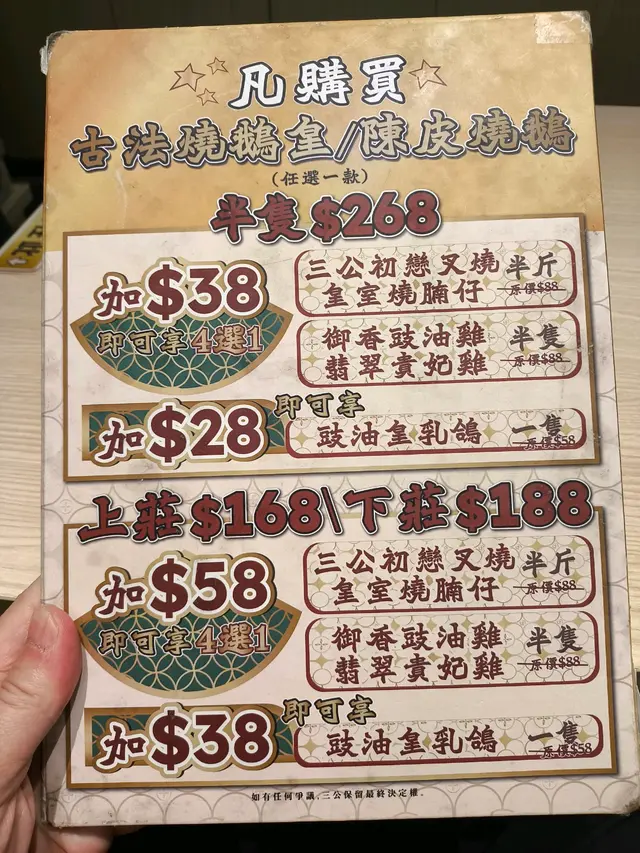 凡購買
古法燒鵝皇/陳皮燒鵝
(任選一款)
半隻$268
加$38
即可享4選1
三公初戀叉燒
皇室燒腩仔
半斤
原價$88
御香豉油雞
翡翠貴妃雞
半隻
原價$88
加$28
即可享
豉油皇乳鴿
一隻
原價$58
上莊$168\下莊$188
加$58
即可享4選1
三公初戀叉燒
皇室燒腩仔
半斤
原價$88
御香豉油雞
翡翠貴妃雞
半隻
原價$88
加$38
即可享
豉油皇乳鴿
一隻
原價$58
如有任何爭議,三公保留最終決定權。